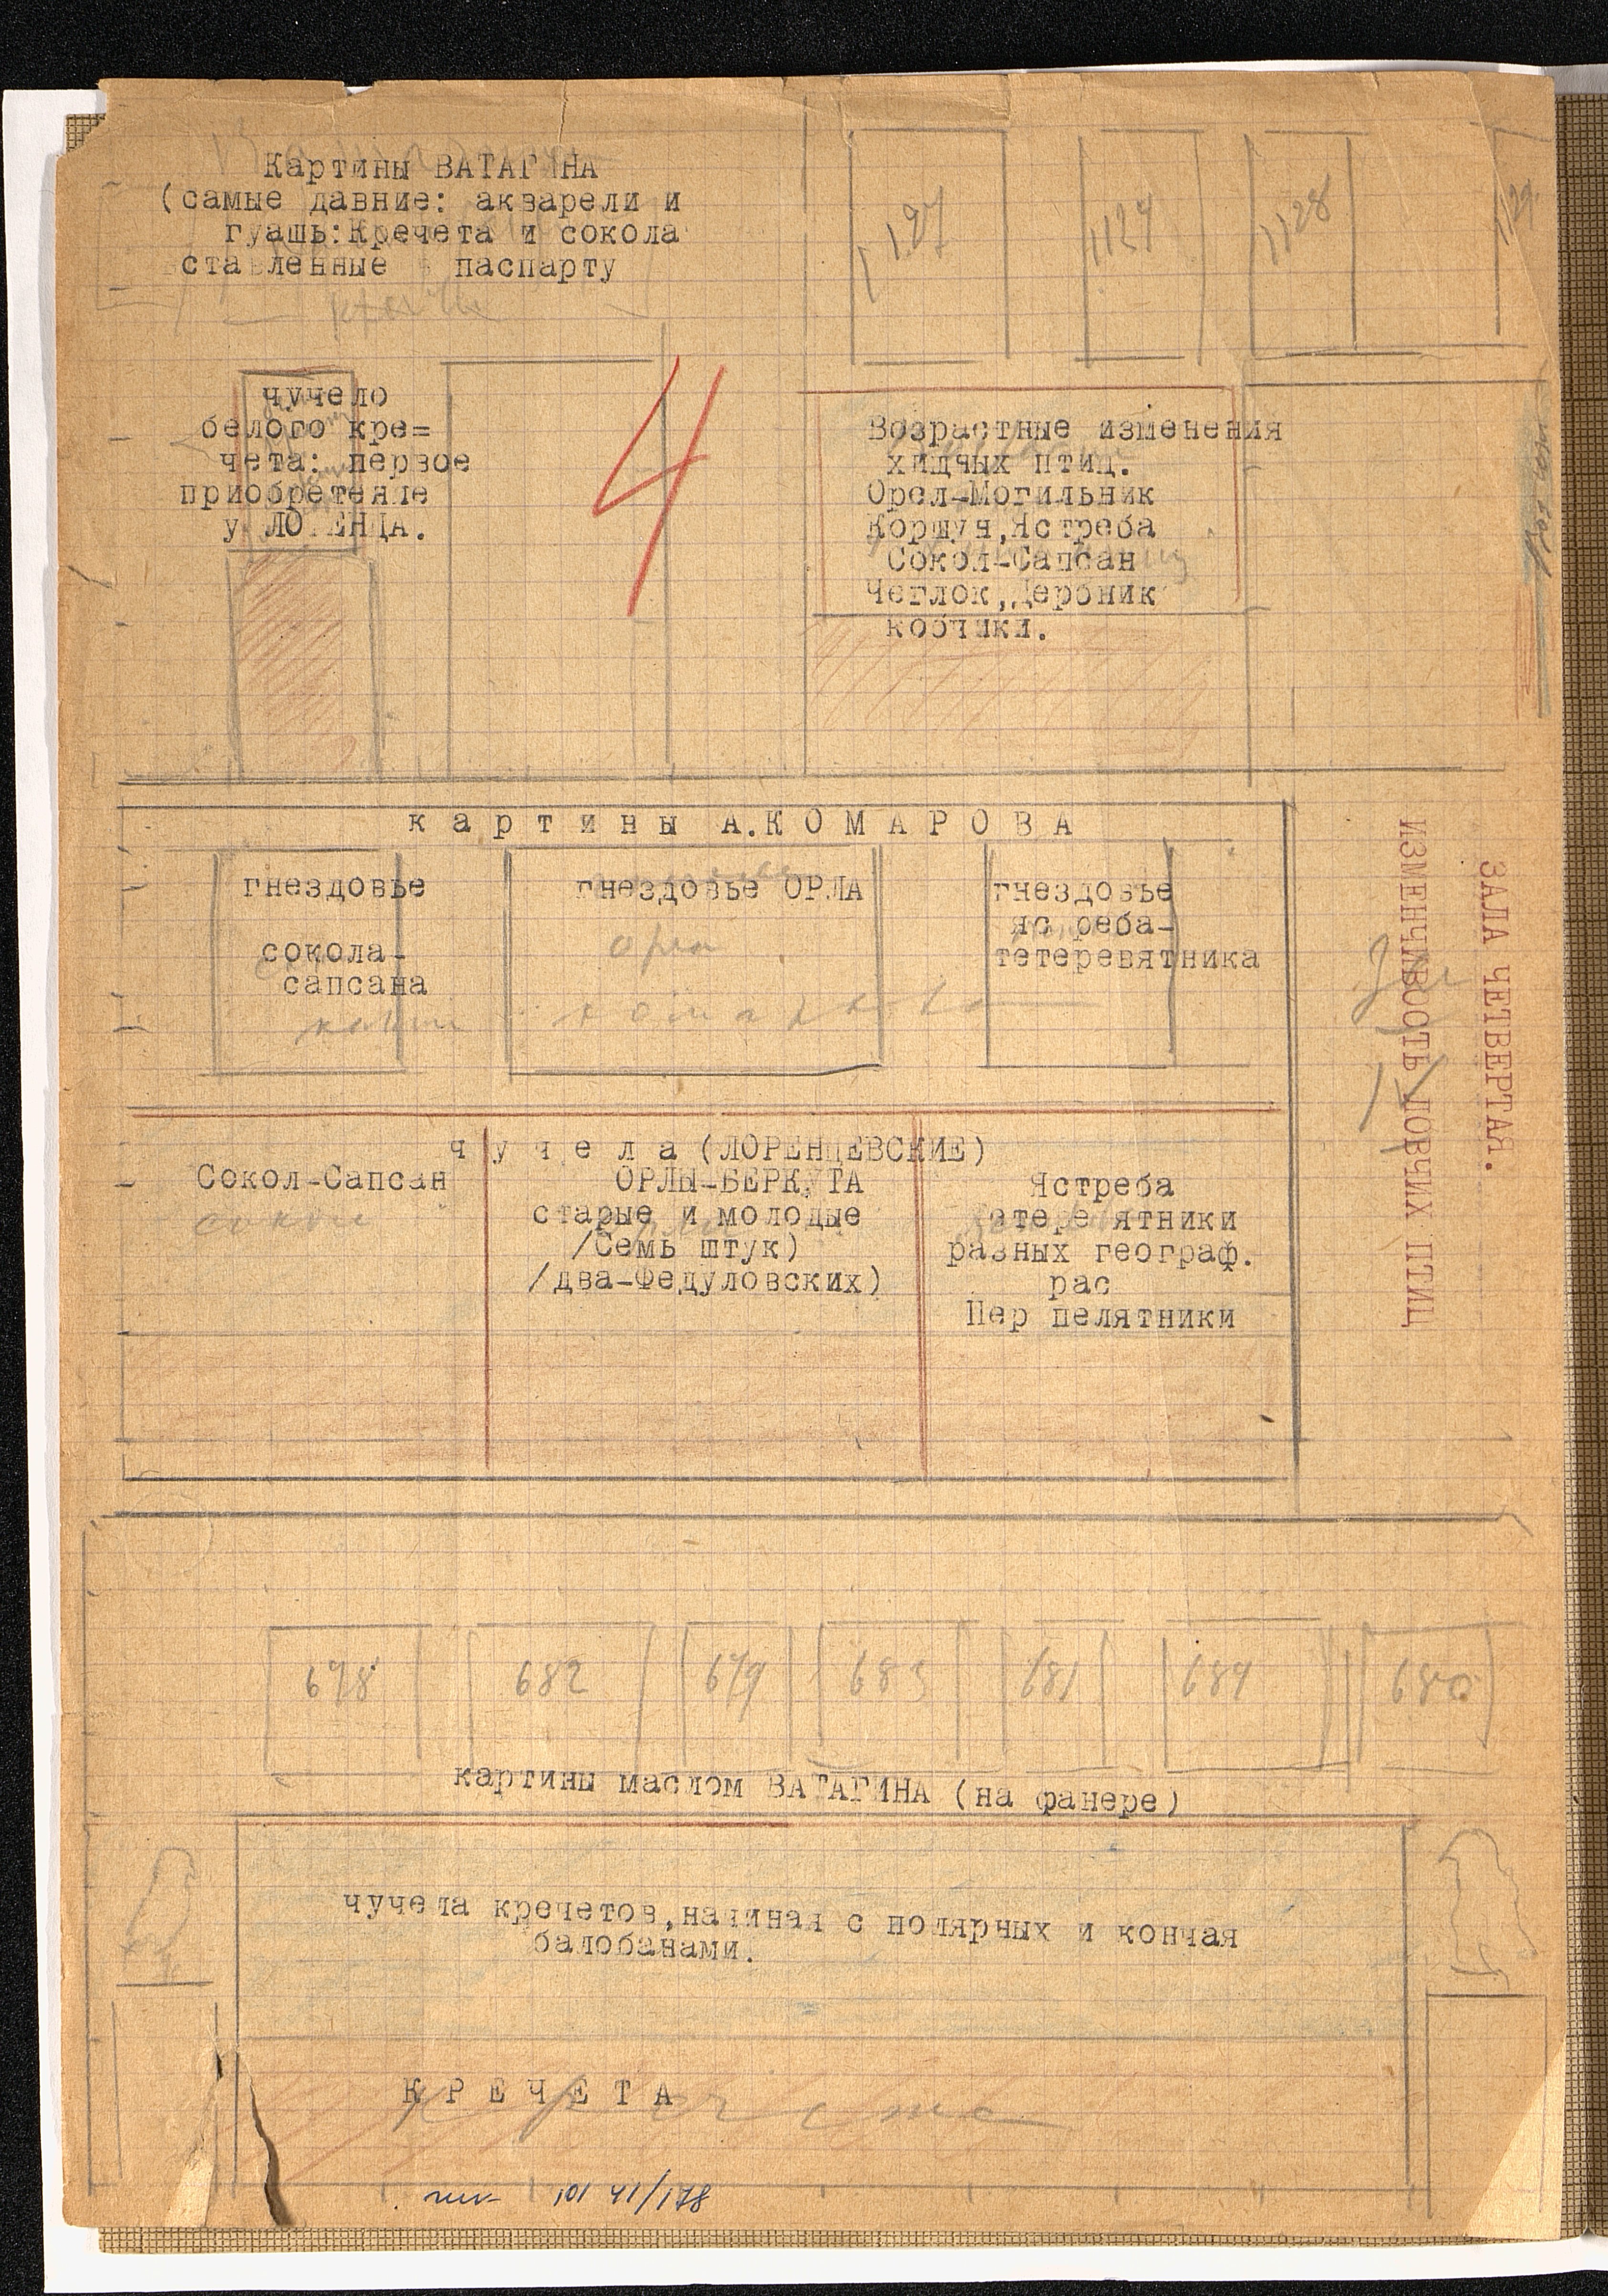 Картины ВАТАГИНА
(самые давние: акварели и
гуашь:Кречета и сокола
ставленные в паспарту
1127
1128
129
чучело
белого кре=
чета: первое
приобретение
у ЛО ЕНЦА.
4
Возрастные изменения
хищных птиц.
Орел-Могильник
Коршун,Ястреба
Сокол-Сапсан
Чеглок,Дербник
кобчики.
картины А.КОМАРОВА
гнездовье
сокола-
сапсана
гнездовье ОРЛА
орла
Комарова
гнездовье
яс реба-
тетеревятника
чучела(ЛОРЕНЦЕВСКИЕ)
Сокол-Сапсан
сокол
ОРЛЫ-БЕРКУТА
старые и молодые
/Семь штук)
/два-Федуловских)
Ястреба
атере ятники
разных географ.
рас
Пер пелятники
ЗАЛА ЧЕТВЕРТАЯ.
ИЗМЕНЧИВОСТЬ ЛОВЧИХ ПТИЦ
Зал
IV
678
682
679
683
681
684
680
картины маслом ВАТАГИНА (на фанере)
чучела кречетов,начиная с полярных и кончая
балобанами.
КРЕЧЕТА
Кречета
101 41/178